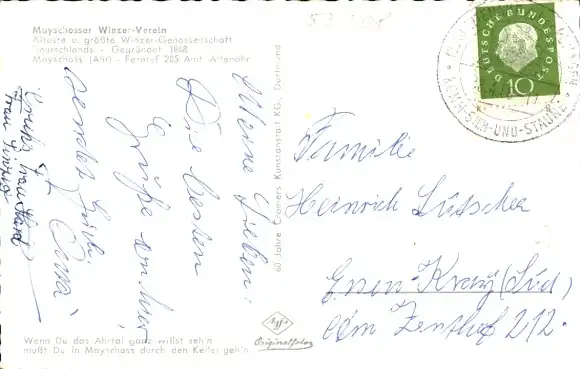 Mayschosser Winzer-Verein
Älteste u. größte Winzer-Genossenschaft
Deutschlands - Gegründet 1868
Mayschoss (Ahr) - Fernruf 205 Amt Altenahr
Meine Lieben!
Die besten
Grüße von hier
sendet Euch
60 Jahre Cramers Kunstanstalt KG., Dortmund
Agfa
Originalfoto
Wenn Du das Ahrtal ganz willst seh'n
mußt Du in Mayschoss durch den Keller geh'n
DEUTSCHE BUNDESPOST
10
KOMM-SIEH-UND-STAUNE
Familie
Heinrich Lütscher
Essen Kray (Süd)
Am Zenthof 212.